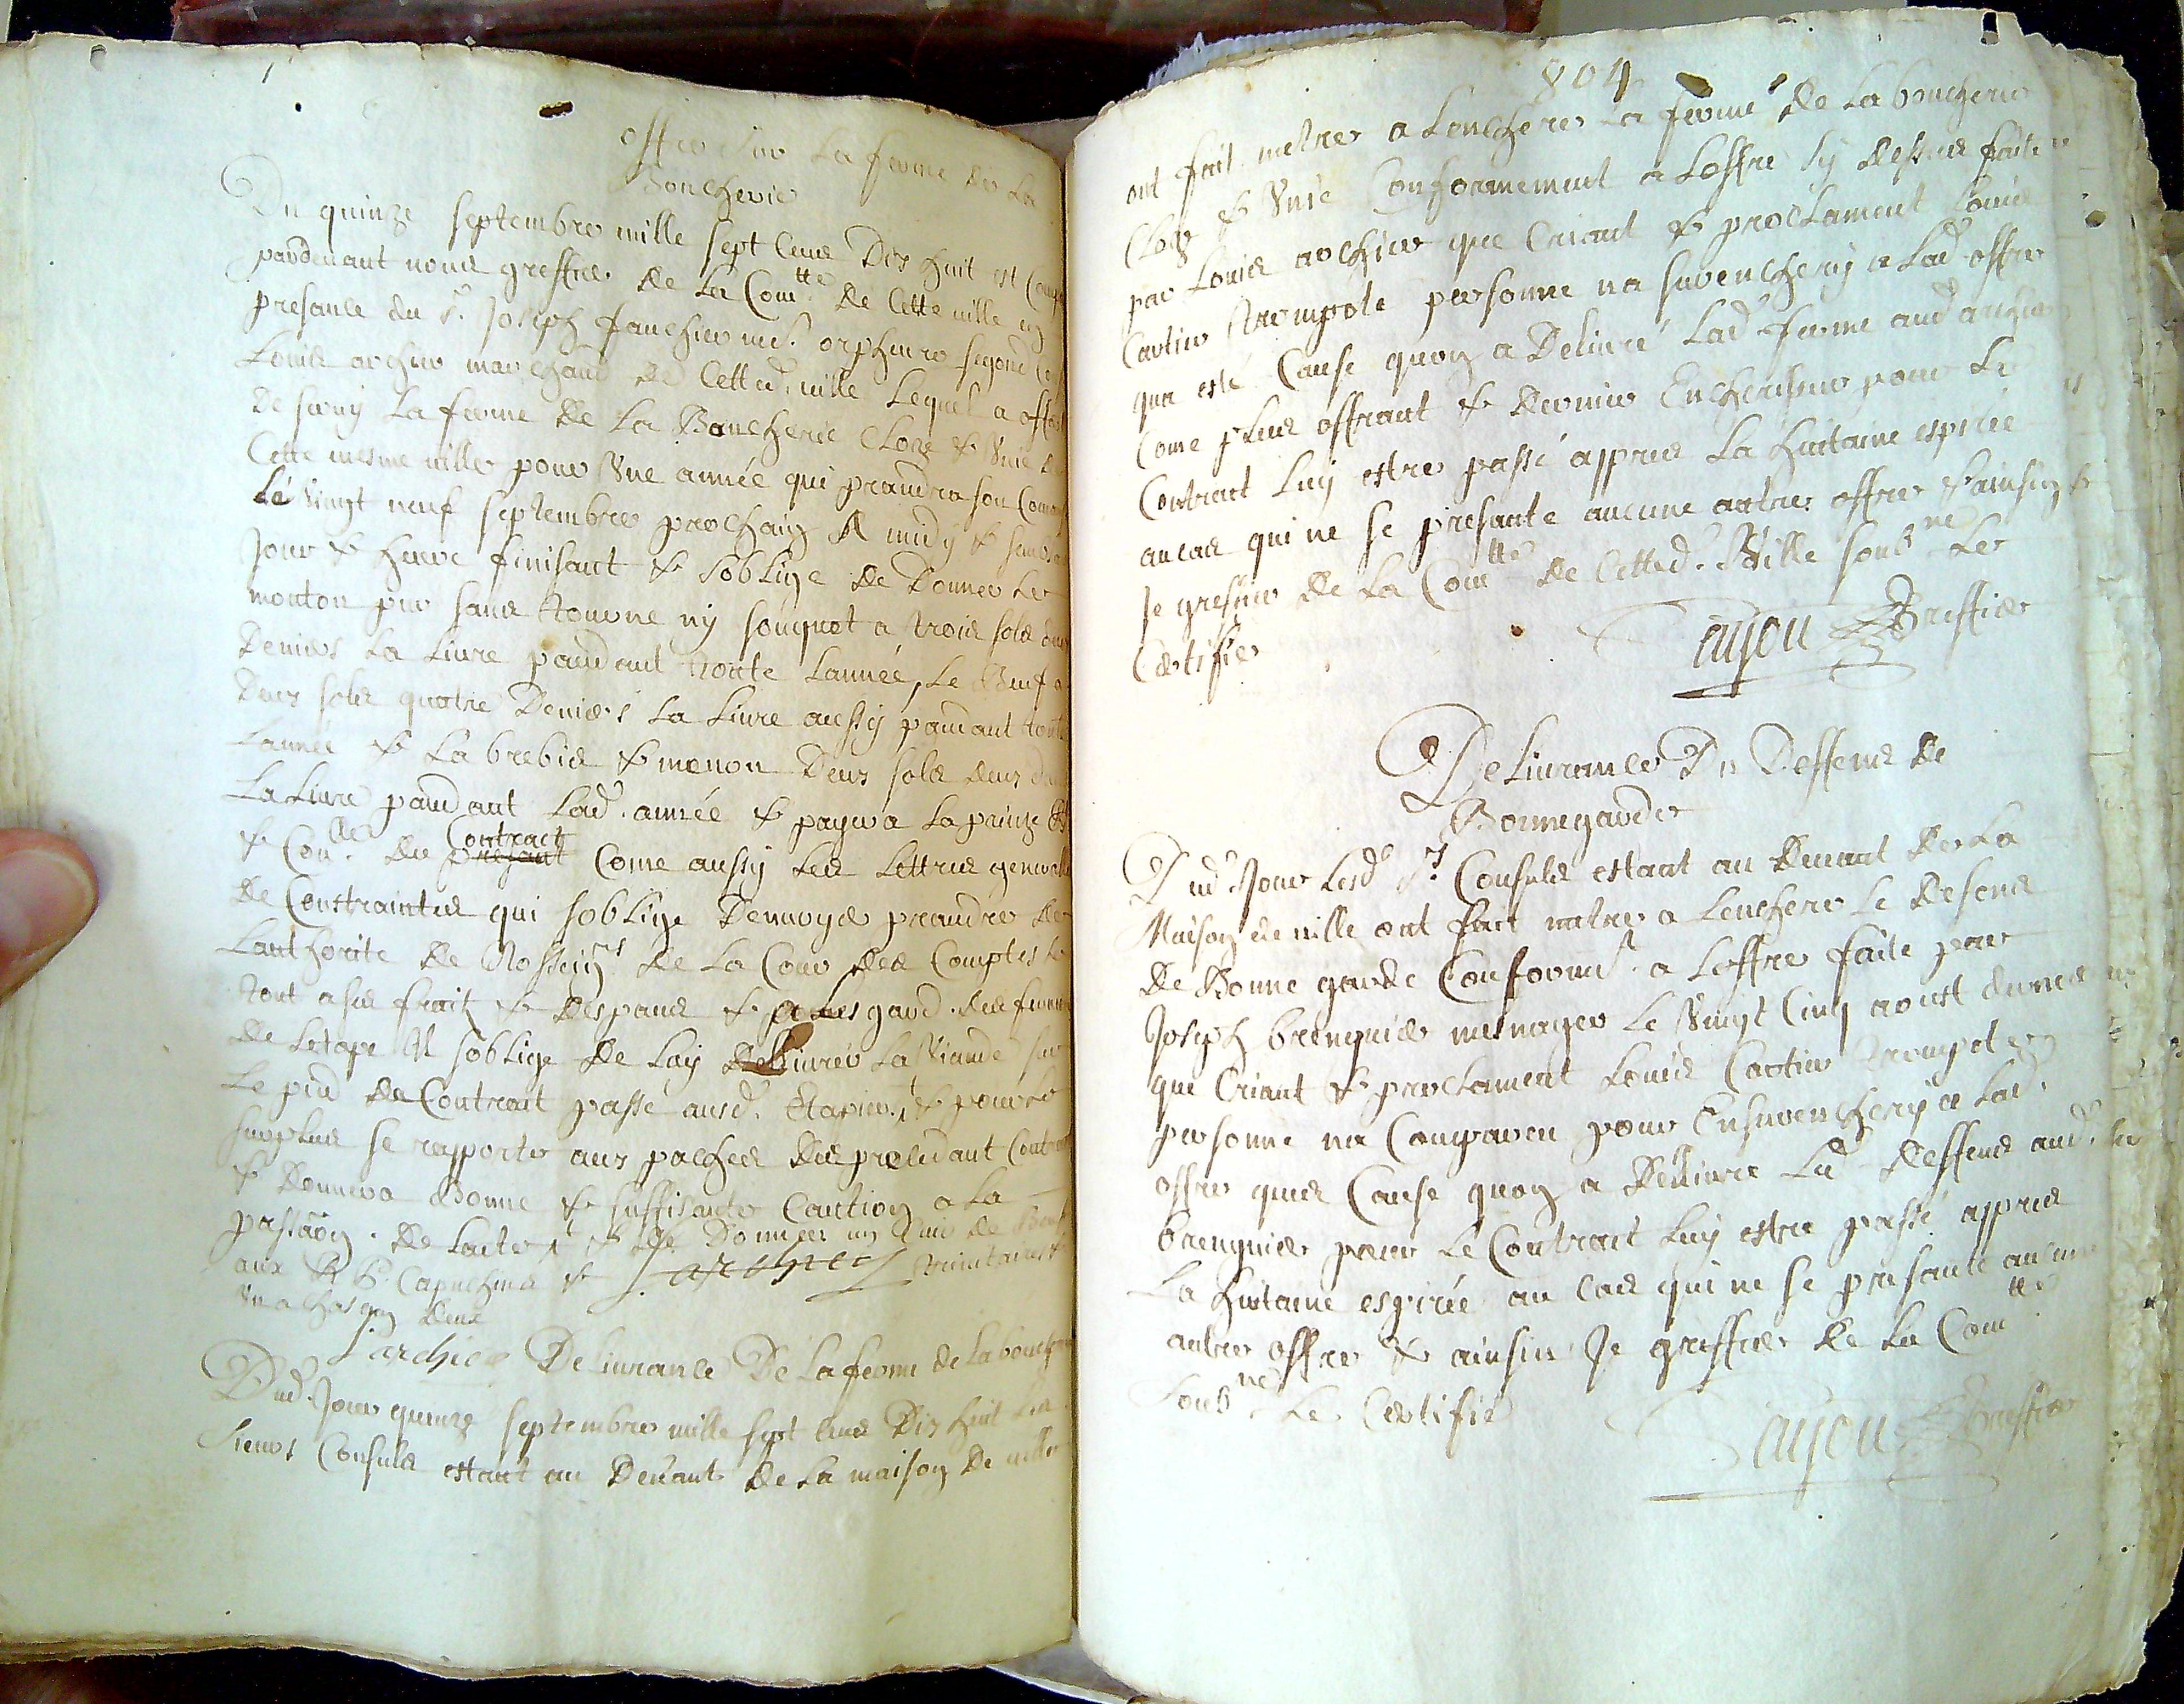 offre sur La ferme de La
Boucherie
Du quinze septembre mille sept Cens Dix huit est Comp
pardevant nous greffier de La Com.tte de Cette ville en
presance du s.r Joseph fauchier m.e orpheuvre segond Con
Louis archier marchand de Cetted. ville Lequel a offert
de servy La ferme de La Boucherie Close & Unie de
Cette mesme ville pour Une année qui prandra son Comen
Lé Vingt neuf septembre prochain A midy & semb
Jour & heure finisant & soblige de Donner Le
mouton pur sans tourne ny souquet a trois sols deux
Deniers La Livre pandant toute Lannée, Le Beuf a
Deux sols quatre Deniers La Livre aussy pandant toute
Lannée & La brebis & menon Deux sols deux d
La Livre pandant Lad. année & payera La prinze &
& Con.on du presant Contract Come aussy Les Lettres generalles
de Constraintes qui soblige Denvoyer prandre de
Lauthorite de Nosseig.rs de La Cour des Comptes Le
tout a ses frais & Despans & a Lesgard des fermiers
de Letape Il soblige de Luy Delivrer La Viande sur
Le pied du Contrait passé ausd. Etapier, & pour Le
surplus se rapporter aux paches du precedant Contrat
& Donnera Bonne & suffisante Caution a La
passaon. de Lacte & de Donner un Quir de Beuf
aux R. P. Capuchins & L archier
Un a chasqun deux
L archier Delivrance De La ferme de La boucherie
Dud. Jour quinze septembre mille sept Cens Dix huit Les
Sieurs Consuls estant au Devant de La maison de ville
804
ont fait metre a Lenchere La ferme de La boucherie
Close & Unie Conformement a Loffre sy dessus faite
par Louis archier que Criant & proclament Louis
Cartier trompete personne na surenchery a Lad offre
qua esté Cause quon a Delivré Lad. ferme aud archier
Come plus offrant & dernier Encherisseur pour Le
Contract Luy estre passé appres La huitaine espirée
aucas qui ne se presante aucune autre offre & ainsin
Je greffier de La Com.tte de Cetted. Ville soub.ne Le
Certifie
Taijou Greffier
Delivrance Du Deffens de
Bonnegarde
Dud. Jour Lesd S.rs Consuls estant au Devant De La
Maison de ville ont fait metre a Lenchere Le Desens
De Bonne garde Conforme.t a Loffre faite par
Joseph brenguier mesnager Le Vingt Cinq aoust dernier
que Criant & proclament Louis Cartier trompete
personne na Compareu pour Ensurenchery a Lad.
offre ques Cause quon a Dellivre Led Deffens aud.
brenguier pour Le Contrait Luy estre passé appres
La huitaine espirée au cas qui ne se presante aucune
autre offre & ainsin Je greffier de La Com.tte
Soub.ne Le Certifie
Taijou Greffier